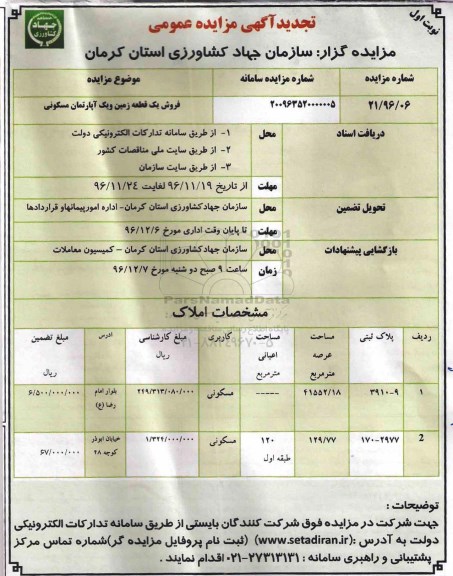 نوبت اول
جهاد کشاورزی
تجدیدآگهی مزایده عمومی
مزایده گزار: سازمان جهاد کشاورزی استان کرمان
شماره مزایده	شماره مزایده سامانه	موضوع مزایده
۲۱/۹۶/۰۶	۲۰۰۹۶۳۵۲۰۰۰۰۰۰۵	فروش یک قطعه زمین ویک آپارتمان مسکونی
دریافت اسناد	محل	۱- از طریق سامانه تدارکات الکترونیکی دولت
۲- از طریق سایت ملی مناقصات کشور
۳- از طریق سایت سازمان
مهلت	از تاریخ ۹۶/۱۱/۱۹ لغایت ۹۶/۱۱/۲٤
تحویل تضمین	محل	سازمان جهادکشاورزی استان کرمان- اداره امورپیمانهاو قراردادها
مهلت	تا پایان وقت اداری مورخ ۹۶/۱۲/۶
بازگشایی پیشنهادات	محل	سازمان جهادکشاورزی استان کرمان – کمیسیون معاملات
زمان	ساعت ۹ صبح دو شنبه مورخ ۹۶/۱۲/۷
ParsNamadData
مشخصات املاک
ردیف	پلاک ثبتی	مساحت عرصه مترمربع	مساحت اعیانی مترمربع	کاربری	مبلغ کارشناسی ریال	آدرس	مبلغ تضمین ریال
۱	۳۹۱۰-۹	۴۱۵۵۲/۱۸	-----	مسکونی	۲۴۹/۳۱۳/۰۸۰/۰۰۰	بلوار امام رضا (ع)	۶/۵۰۰/۰۰۰/۰۰۰
2	۱۷۰-۲۹۷۷	۱۲۹/۷۷	۱۲۰ طبقه اول	مسکونی	۱/۳۲۴/۰۰۰/۰۰۰	خیابان ابوذر کوچه ۲۸	۶۷/۰۰۰/۰۰۰
توضیحات :
جهت شرکت در مزایده فوق شرکت کنندگان بایستی از طریق سامانه تدارکات الکترونیکی
دولت به آدرس :(www.setadiran.ir) (ثبت نام پروفایل مزایده گر)شماره تماس مرکز
پشتیبانی و راهبری سامانه : ۲۷۳۱۳۱۳۱-۰۲۱ اقدام نمایند .